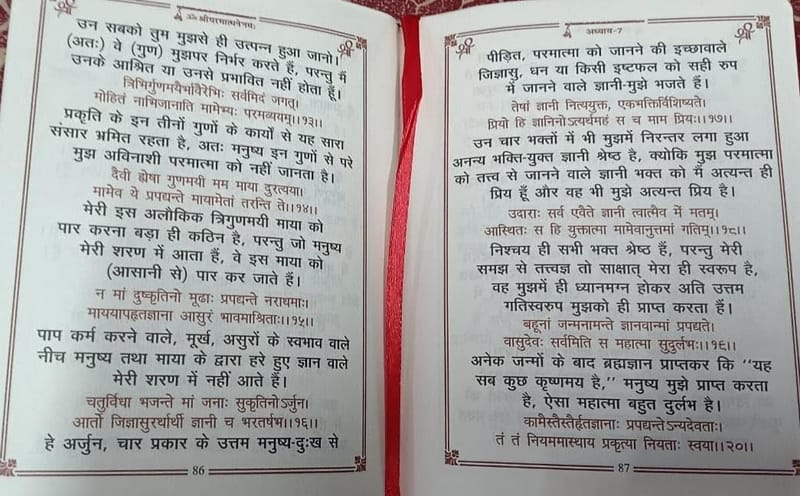 ॐ श्रीपरमात्मनेनमः
श्री
उन सबको तुम मुझसे ही उत्पन्न हुआ जानो।
(अतः) वे (गुण) मुझपर निर्भर करते हैं, परन्तु मैं
उनके आश्रित या उनसे प्रभावित नहीं होता हूँ।
त्रिभिर्गुणमयैर्भावैरेभिः सर्वमिदं जगत्।
मोहितं नाभिजानाति मामेभ्यः परमव्ययम्।।१३।।
प्रकृति के इन तीनों गुणों के कार्यों से यह सारा
संसार भ्रमित रहता है, अतः मनुष्य इन गुणों से परे
मुझ अविनाशी परमात्मा को नहीं जानता है।
दैवी ह्येषा गुणमयी मम माया दुरत्यया।
मामेव ये प्रपद्यन्ते मायामेतां तरन्ति ते।।१४।।
मेरी इस अलौकिक त्रिगुणमयी माया को
पार करना बड़ा ही कठिन है, परन्तु जो मनुष्य
मेरी शरण में आता हैं, वे इस माया को
(आसानी से) पार कर जाते हैं।
न मां दुष्कृतिनो मूढाः प्रपद्यन्ते नराधमाः।
माययापहृतज्ञाना आसुरं भावमाश्रिताः।।१५।।
पाप कर्म करने वाले, मूर्ख, असुरों के स्वभाव वाले
नीच मनुष्य तथा माया के द्वारा हरे हुए ज्ञान वाले
मेरी शरण में नहीं आते हैं।
चतुर्विधा भजन्ते मां जनाः सुकृतिनोऽर्जुन।
आर्तो जिज्ञासुरर्थार्थी ज्ञानी च भरतर्षभ।।१६।।
हे अर्जुन, चार प्रकार के उत्तम मनुष्य-दुःख से
86
अध्याय-7
श्री
पीड़ित, परमात्मा को जानने की इच्छावाले
जिज्ञासु, धन या किसी इष्टफल को सही रुप
में जानने वाले ज्ञानी-मुझे भजते हैं।
तेषां ज्ञानी नित्ययुक्त, एकभक्तिर्विशिष्यते।
प्रियो हि ज्ञानिनोऽत्यर्थमहं स च माम प्रियः।।१७।।
उन चार भक्तों में भी मुझमें निरन्तर लगा हुआ
अनन्य भक्ति-युक्त ज्ञानी श्रेष्ठ है, क्योकि मुझ परमात्मा
को तत्व से जानने वाले ज्ञानी भक्त को मैं अत्यन्त ही
प्रिय हूँ और वह भी मुझे अत्यन्त प्रिय है।
उदाराः सर्व एवैते ज्ञानी त्वात्मैव में मतम्।
आस्थितः स हि युक्तात्मा मामेवानुत्तमां गतिम्।।१८।।
निश्चय ही सभी भक्त श्रेष्ठ हैं, परन्तु मेरी
समझ से तत्त्वज्ञ तो साक्षात् मेरा ही स्वरूप है,
वह मुझमें ही ध्यानमग्न होकर अति उत्तम
गतिस्वरुप मुझको ही प्राप्त करता हैं।
बहूनां जन्मनामन्ते ज्ञानवान्मां प्रपद्यते।
वासुदेवः सर्वमिति स महात्मा सुदुर्लभः।।१६।।
अनेक जन्मों के बाद ब्रह्मज्ञान प्राप्तकर कि “यह
सब कुछ कृष्णमय है,” मनुष्य मुझे प्राप्त करता
है, ऐसा महात्मा बहुत दुर्लभ है।
कामैस्तैस्तैर्हृतज्ञानाः प्रपद्यन्तेऽन्यदेवताः।
तं तं नियममास्थाय प्रकृत्या नियताः स्वया।।२०।।
87